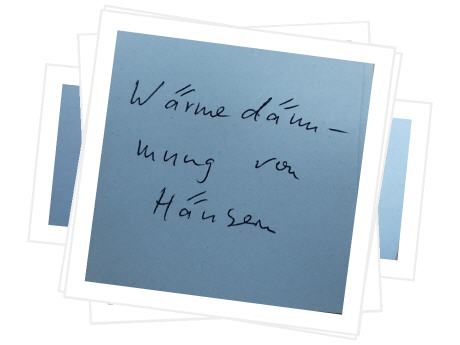 Wärmedäm-
mung von
Häusern